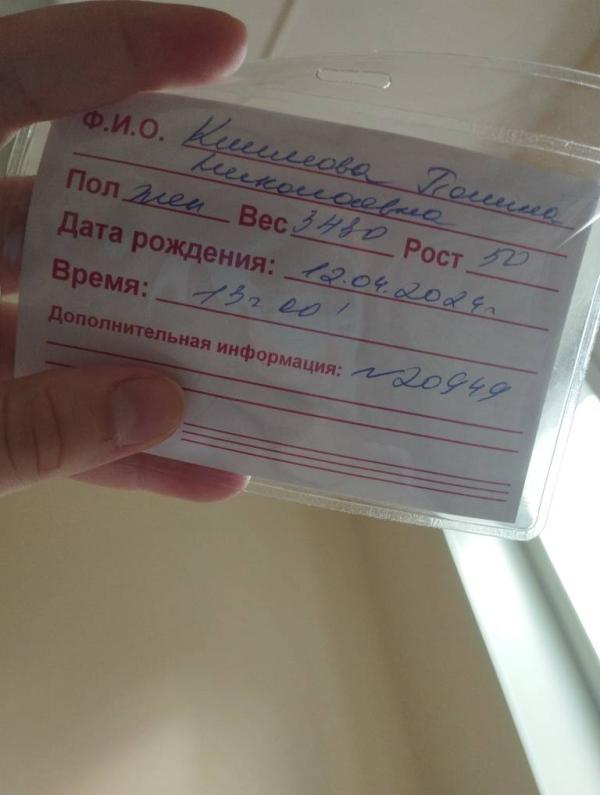 Ф.И.О. Климова Полина
Николаевна
Пол жен Вес 3480 Рост 50
Дата рождения: 12.04.2024г.
Время: 13ч 00'
Дополнительная информация: №20949